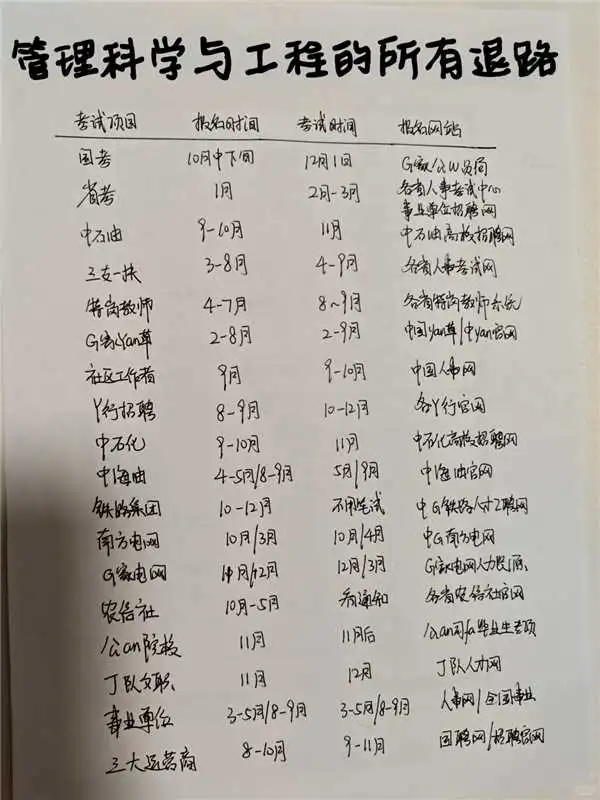 管理科学与工程的所有退路
考试项目 报名时间 考试时间 报名网站
国考 10月中下旬 12月1日 G家/公W员局
省考 1月 2月-3月 各省人事考试中心
事业单位招聘网
中石油 9-10月 11月 中石油高校招聘网
三支一扶 3-8月 4-9月 各省人事考试网
特岗教师 4-7月 8~9月 各省特岗教师系统
G家Yan草 2-8月 2-9月 中国Yan草/中Yan官网
社区工作者 9月 9-10月 中国人事网
丫行招聘 8-9月 10-12月 各丫行官网
中石化 9-10月 11月 中石化高校招聘网
中海油 4-5月/8-9月 5月/9月 中海油官网
铁路集团 10-12月 不用笔试 中G铁路人才招聘网
南方电网 10月/3月 10月/4月 中G南方电网
G家电网 11月/12月 12月/3月 G家电网人力资源
农信社 10月-5月 看通知 各省农信社官网
公an院校 11月 11月后 公an司fa毕业生专项
丁队文职 11月 12月 丁队人才网
事业单位 3-5月/8-9月 3-5月/8-9月 人事网/全国事业
三大运营商 8-10月 9-11月 国聘网/招聘官网